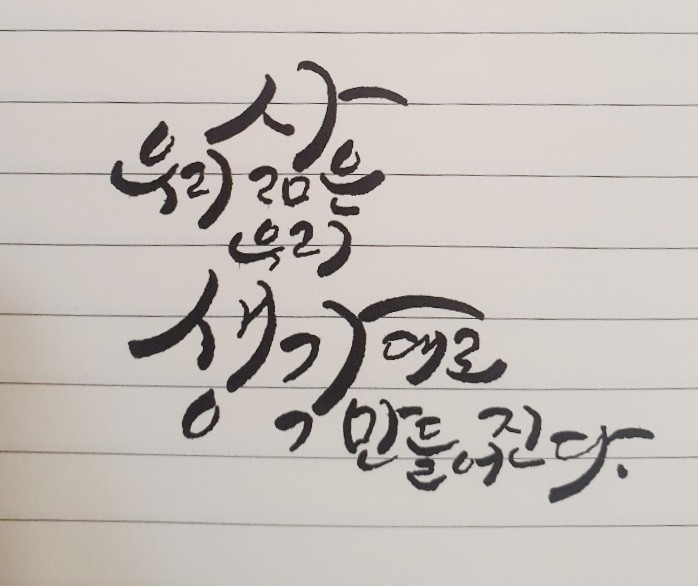 우리 삶은
우리
생각대로
만들어진다.